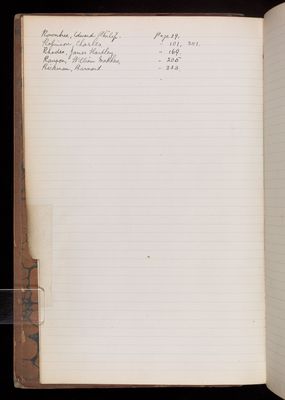 Rowntree, Edward Philip. Page 29.
Robinson, Charles – 101, 201.
Rhodes, James Hartley – 169.
Ranson, William – 205
Rickman, Barnard. – 223.